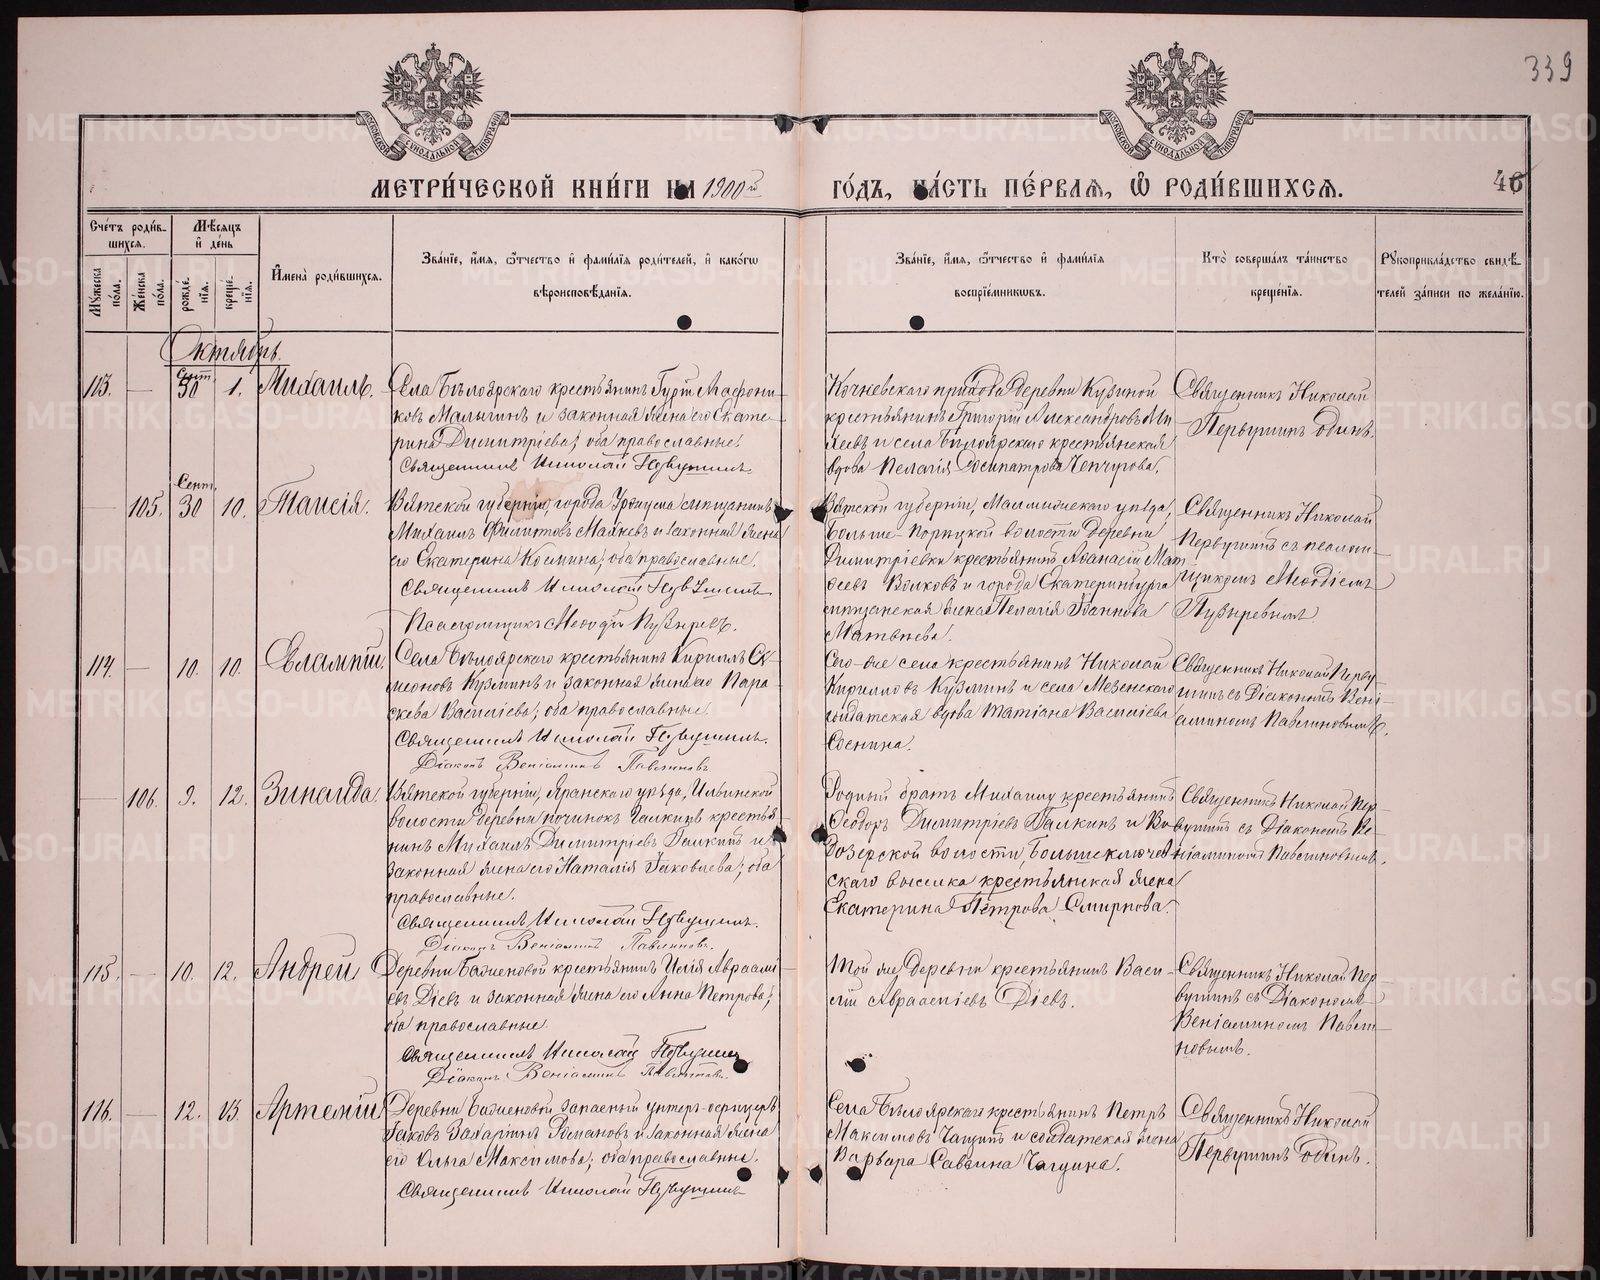 339
МОСКОВСКОЙ СѴНОДАЛЬНОЙ ТИПОГРАФІИ
МОСКОВСКОЙ СѴНОДАЛЬНОЙ ТИПОГРАФІИ
МЕТРИ́ЧЕСКОЙ КНИ́ГИ НА 1900й ГО́ДЪ, ЧА́СТЬ ПЕ́РВАЯ, Ѽ РОДИ́ВШИХСЯ.
46
Сче́тъ роди́в-
шихся.
Мѣ́сяцъ
и де́нь
Мꙋ́жеска по́ла.
Же́нска по́ла.
рожде́-
нїя.
креще́-
нїя.
Имена̀ роди́вшихся.
Зва́нїе, и́мя, ѻ́тчество и фами́лїя роди́телей, и како́гѡ
вѣроисповѣ́данїя.
Зва́нїе, и́мя, ѻ́тчество и фами́лїя
воспрїе́мникѡвъ.
Кто̀ соверша́лъ та́инство
креще́нїя.
Рꙋкоприкла́дство свидѣ́-
телей за́писи по жела́нїю.
Октябрь.
113. — Сент. 30 1. Михаилъ.
Села Бѣлоярскаго крестьянинъ Гурій Мафони-
ковъ Малыгинъ и законная жена его Екате-
рина Димитріева; оба православные.
Священникъ Николай Первушинъ.
Кочневскаго прихода деревни Кузиной
крестьянинъ Григорій Александровъ Ми-
хеевъ и села Бѣлоярскаго крестьянская
вдова Пелагія Осипатрова Чепчугова.
Священникъ Николай
Первушинъ одинъ.
— 105. Сент. 30 10. Таисія.
Вятской губерніи, города Уржума мѣщанинъ
Михаилъ Филиповъ Маячевъ и законная жена
его Екатерина Косьмина; оба православные.
Священникъ Николай Первушинъ
Псаломщикъ Меѳодій Пузыревъ.
Вятской губерніи, Малмыжскаго уѣзда,
Больше-Порекской волости деревни
Димитріевки крестьянинъ Аѳанасій Мат-
ѳеевъ Волковъ и города Екатеринбурга
мѣщанская жена Пелагія Іоаннова
Матвѣева.
Священникъ Николай
Первушинъ съ псалом-
щикомъ Меѳодіемъ
Пузыревымъ.
114. — 10. 10. Евлампій.
Села Бѣлоярскаго крестьянинъ Кириллъ Си-
меоновъ Кузминъ и законная жена его Пара-
скева Василіева; оба православные.
Священникъ Николай Первушинъ.
Діаконъ Веніаминъ Павлиновъ
Сего-же села крестьянинъ Николай
Кирилловъ Кузминъ и села Мезенскаго
солдатская вдова Татіана Василіева
Соснина.
Священникъ Николай Перву-
шинъ съ Діакономъ Вені-
аминомъ Павлиновымъ.
— 106. 9. 12. Зинаида.
Вятской губерніи, Яранскаго уѣзда, Ильинской
волости деревни починокъ Галкинъ крестья-
нинъ Михаилъ Димитріевъ Галкинъ и
законная жена его Наталія Іаковлева; оба
православные.
Священникъ Николай Первушинъ.
Діаконъ Веніаминъ Павлиновъ.
Родный братъ Михаилу крестьянинъ
Ѳеодоръ Димитріевъ Галкинъ и Во-
дозерской волости, Большеключев-
скаго выселка крестьянская жена
Екатерина Петрова Смирнова.
Священникъ Николай Пер-
вушинъ съ Діакономъ Ве-
ніаминомъ Павлиновымъ.
115. — 10. 12. Андрей
Деревни Баженовой крестьянинъ Илія Авраамі-
евъ Діевъ и законная жена его Анна Петрова;
оба православные.
Священникъ Николай Первушинъ
Діаконъ Веніаминъ Павлиновъ.
Той же деревни крестьянинъ Васи-
лій Авраамiевъ Діевъ.
Священникъ Николай Пер-
вушинъ съ Діакономъ
Веніаминомъ Павли-
новымъ.
116. — 12. 13 Артемій
Деревни Баженовой запасный унтеръ-офицеръ
Іаковъ Захаріинъ Романовъ и законная жена
его Ольга Максимова; оба православные.
Священникъ Николай Первушинъ
Села Бѣлоярскаго крестьянинъ Петръ
Максимовъ Чащинъ и солдатская жена
Варвара Саввина Чащина.
Священникъ Николай
Первушинъ одинъ.
METRIKI.GASO-URAL.RU